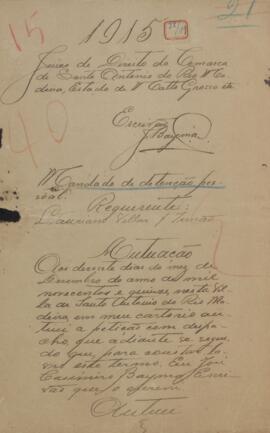 1915
15
40
21
Juizo de Direito da Comarca
de Santo Antonio do Rio Ma
deira, Estado de Matto Grosso
Escrivão
J. Bayma
Mandado de detenção pes
soal.
Requerente:
Villar & Irmão
Autuação
Aos dias do mez de
Dezembro do anno de mil
novecentos e quinze nesta Vil
la de Santo Antonio do Rio Ma
deira, em meu cartorio au
tuei a petição com despa
cho, que adiante se segue,
do que, para constar la
vro este termo. Eu José
Casimiro Bayma Escri
vão que o escrevi.
Autuei